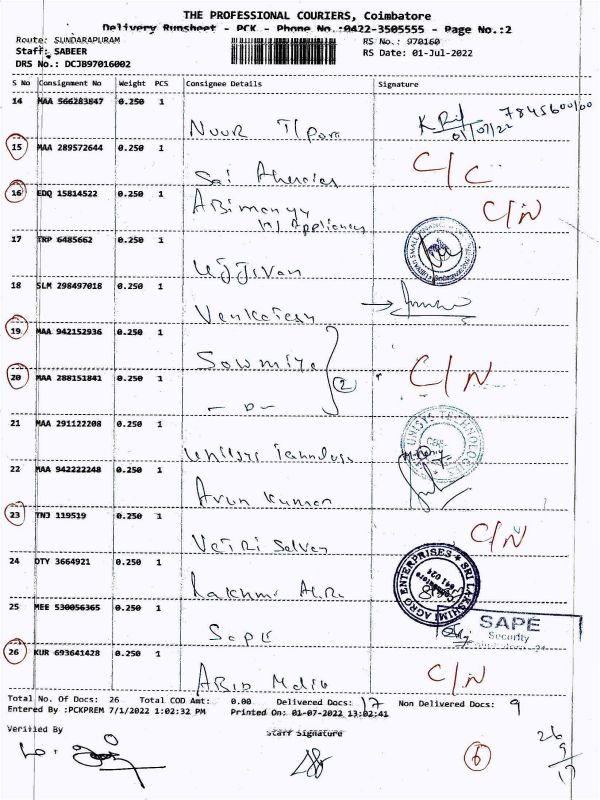 THE PROFESSIONAL COURIERS, Coimbatore
Delivery Runsheet - PCK - Phone No.:0422-3505555 - Page No.:2
Route: SUNDARAPURAM RS No.: 970160
Staff: SABEER RS Date: 01-Jul-2022
DRS No.: DCJB97016002
S No Consignment No Weight PCS Consignee Details Signature
14 MAA 566283847 0.250 1
Noor T/Pore
15 MAA 289572644 0.250 1 C/C
Sai
16 EDQ 15814522 0.250 1 C/N
Abimanyu
Appliances
17 TRP 6485662 0.250 1
Ujjivan
18 SLM 298497018 0.250 1
Venkatesh
19 MAA 942152936 0.250 1
Sowmiya
20 MAA 288151841 0.250 1 2 C/N
- D -
21 MAA 291122208 0.250 1
UNISYS TECHNOLOGIES
22 MAA 942222248 0.250 1
Arun Kumar
23 TNJ 119519 0.250 1 C/N
Vetri Selvan
24 OTY 3664921 0.250 1
SRI LAKSHMI AGRO ENTERPRISES
Lakshmi Agro
25 MEE 530056365 0.250 1
SAPE
Security
Sape
26 KUR 693641428 0.250 1 C/N
Total No. Of Docs: 26 Total COD Amt: 0.00 Delivered Docs: 17 Non Delivered Docs: 9
Entered By :PCKPREM 7/1/2022 1:02:32 PM Printed On: 01-07-2022 13:02:41
Verified By Staff Signature
26
9
17